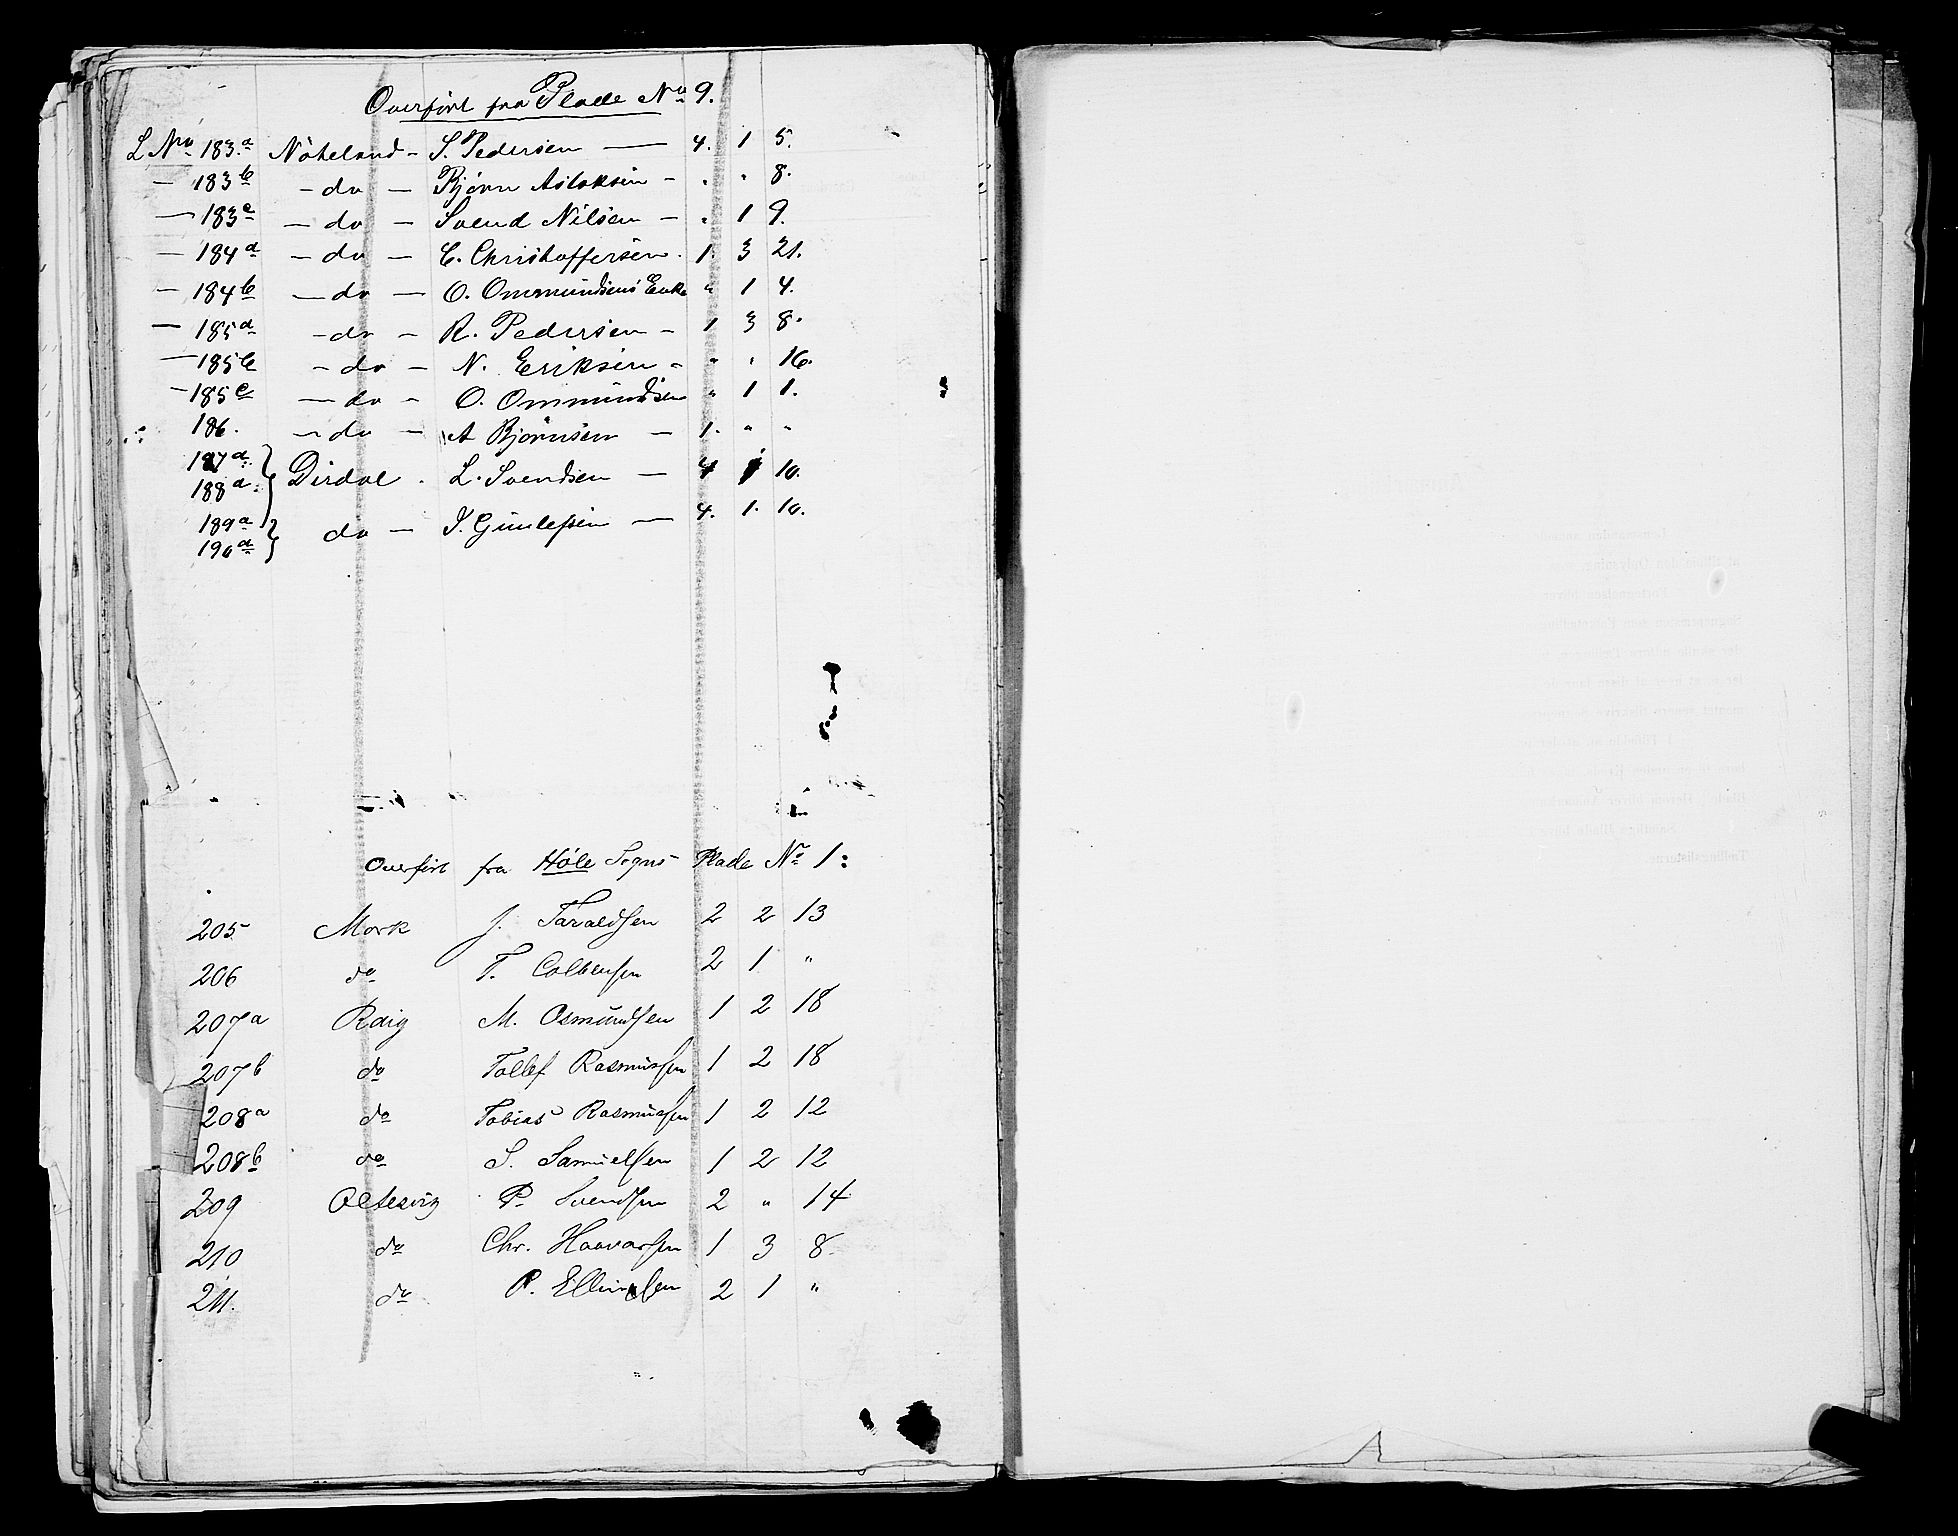 Overført fra Plade No 9.
L No 183.a Nöteland - S. Pedersen — 4. 1 5.
— 183b — do — Björn Aslaksen - " " 8.
— 183c — do — Svend Nilsen — " 1 9.
— 184a — do — C. Christoffersen. 1. 3 21.
— 184b — do — O. Ommundsens Enke " 1 4.
— 185a — do — R. Pedersen - 1 3 8.
— 185b — do — N. Eriksen - " " 16.
— 185c — do — O. Ommundsen " 1 1.
186. — do — A Björnsen — 1. " "
187a
188a. Dirdal . L. Svendsen — 4 1 10.
189a
190a do — J. Gunlefsen — 4. 1. 10.
Overført fra Høle Sogns Plade No 1:
205 Mork J. Taraldsen 2 2 13
206 do T. Colbensen 2 1 "
207a M. Osmundsen 1 2 18
207b do Tollef Rasmussen 1 2 18
208a do Tobias Rasmussen 1 2 12
208b do S. Samuelsen 1 2 12
209 Oltesvig P. Svendsen 2 " 14
210 do Chr. Haavarsen 1 3 8.
211. do P. Ellingsen 2 1 "